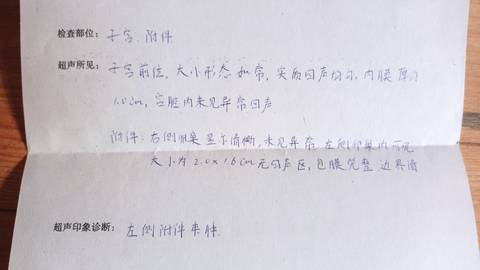 检查部位: 子宫. 附件
超声所见: 子宫前位, 大小形态正常, 实质回声均匀, 内膜厚约
1.0cm, 宫腔内未见异常回声
附件: 右侧卵巢显示清晰, 未见异常, 左侧卵巢内可见
大小为 2.0×1.6cm无回声区, 包膜完整 边界清
超声印象诊断: 左侧附件囊肿